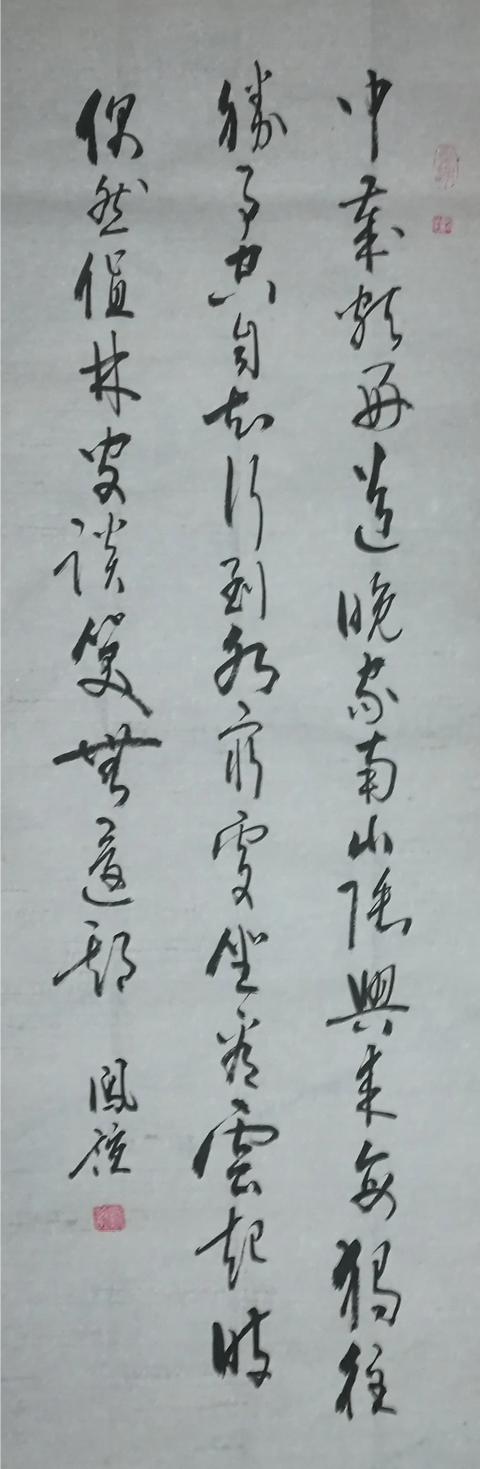 中歲頗好道晚家南山陲興來每獨往
勝事空自知行到水窮處坐看雲起時
偶然值林叟談笑無還期
鳳